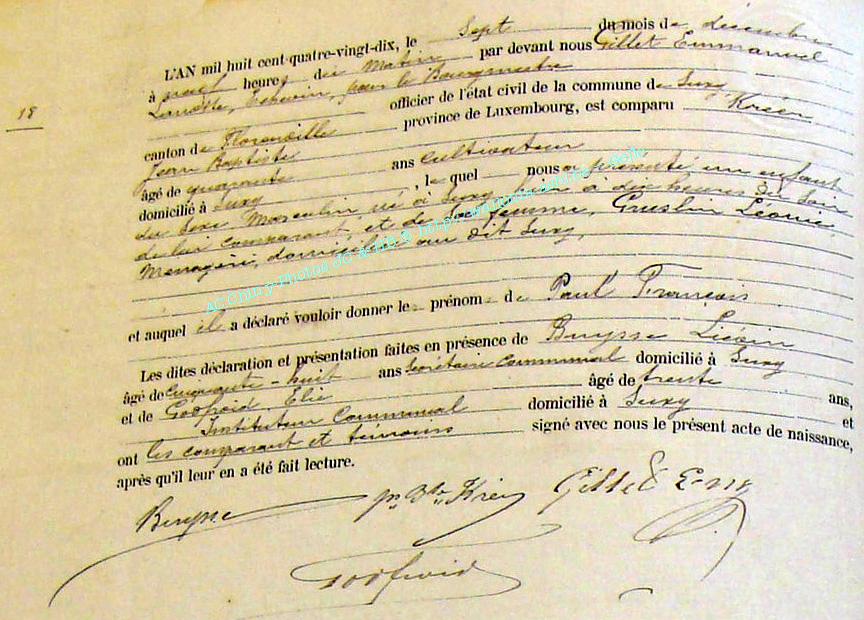 L'AN mil huit cent-quatre-vingt-dix, le sept du mois de décembre
à neuf heures du matin par devant nous Gillet Emmanuel
Echevin, pour le Bourgmestre
officier de l'état civil de la commune de Suxy
18
canton de Florenville province de Luxembourg, est comparu
Jean Baptiste
âgé de quarante ans cultivateur
domicilié à Suxy, le quel nous a présenté un enfant
du sexe Masculin né à Suxy, hier à dix heures du soir
de lui comparant, et de sa femme, Gruslin Léonie
Menagère, domiciliée au dit Suxy,
et auquel il a déclaré vouloir donner les prénoms de Paul François
Les dites déclaration et présentation faites en présence de Buysse
âgé de cinquante-huit ans secrétaire communal domicilié à Suxy
et de Godfroid, Elie âgé de trente ans,
Instituteur Communal domicilié à Suxy et
ont les comparant et témoins signé avec nous le présent acte de naissance,
après qu'il leur en a été fait lecture.
Buysse Gillet
Godfroid